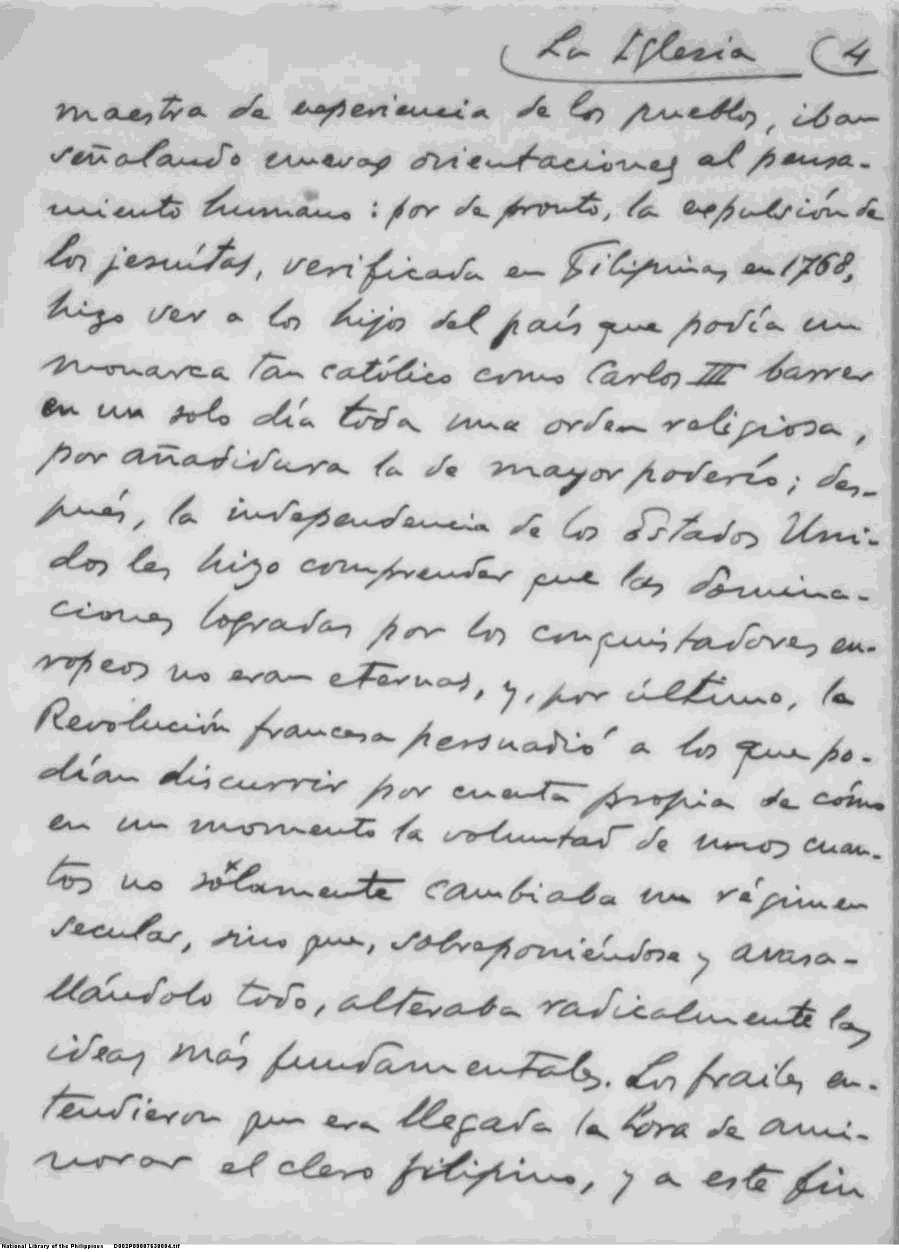 La Iglesia (4
maestra de experiencia de los pueblos, iban
señalando nuevas orientaciones al pensa-
miento humano: por de pronto, la expulsión de
los jesuítas, verificada en Filipinas en 1768,
hizo ver a los hijos del país que podía un
monarca tan católico como Carlos III barrer
en un solo día toda una orden religiosa,
por añadidura la de mayor poderío; des-
pués, la independencia de los Estados Uni-
dos les hizo comprender que las domina-
ciones logradas por los conquistadores eu-
ropeos no eran eternas, y, por último, la
Revolución francesa persuadió a los que po-
dían discurrir por cuenta propia de cómo
en un momento la voluntad de unos cuan-
tos no sólamente cambiaba un régimen
secular, sino que, sobreponiéndose y avasa-
llándolo todo, alteraba radicalmente las
ideas más fundamentales. Los frailes en-
tendieron que era llegada la hora de ami-
norar el clero filipino, y a este fin
National Library of the Philippines D002P00007630004.tif